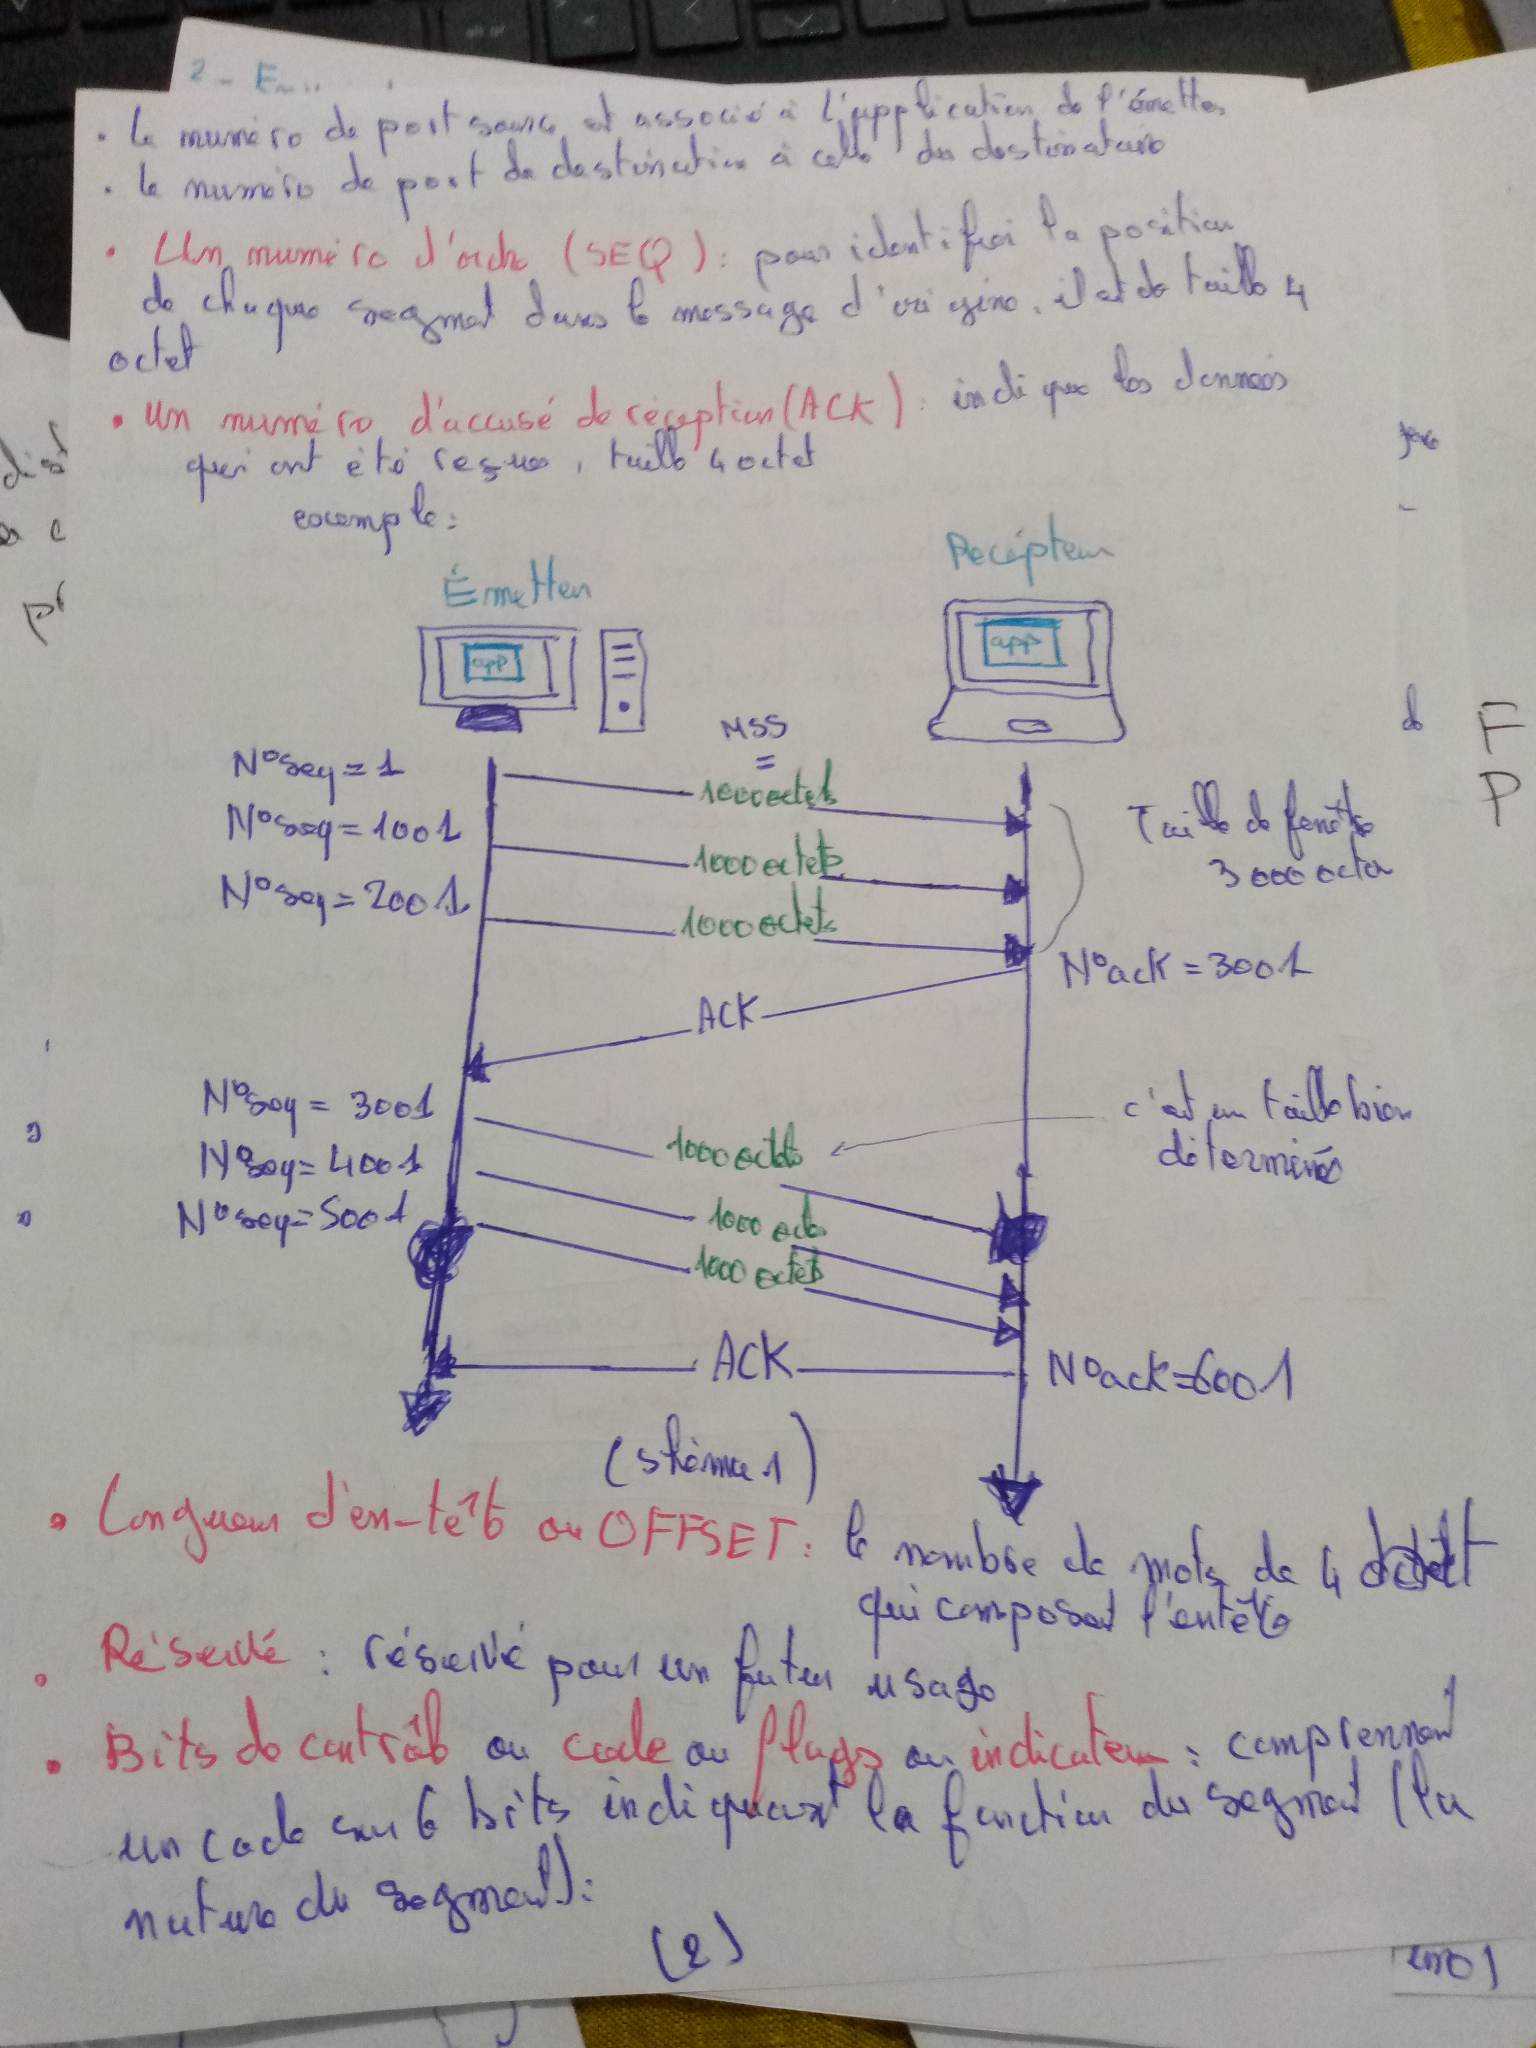 2 - E
• Le numéro de port source et associé à l'application de l'émetteur
• Le numéro de port de destination à celle du destinataire
• Un numéro d'ordre (SEQ) : pour identifier la position
de chaque segment dans le message d'origine. il est de taille 4
octet
• un numéro d'accusé de réception (ACK) : indique les données
qui ont été reçues, taille 4 octet
exemple :
Récépteur
Émetteur
app
app
MSS
=
N°seq = 1
1000 octets
N°seq = 1001
Taille de fenêtre
3000 octer
1000 octets
N°seq = 2001
1000 octets
N°ack = 3001
ACK
N°seq = 3001
c'est un taille bien
déterminés
1000 octets
N°seq = 4001
N°seq = 5001
1000 octs
1000 octets
ACK
N°ack = 6001
(shéma 1)
• Longueur d'en-tête ou OFFSET : le nombre de mots de 4 octet
qui composent l'entête
• Réservé : réservé pour un futur usage
• Bits de contrôle ou code ou flags ou indicateur : comprennent
un code sur 6 bits indiquant la fonction du segment (la
nature du segment) :
(2)
F
P